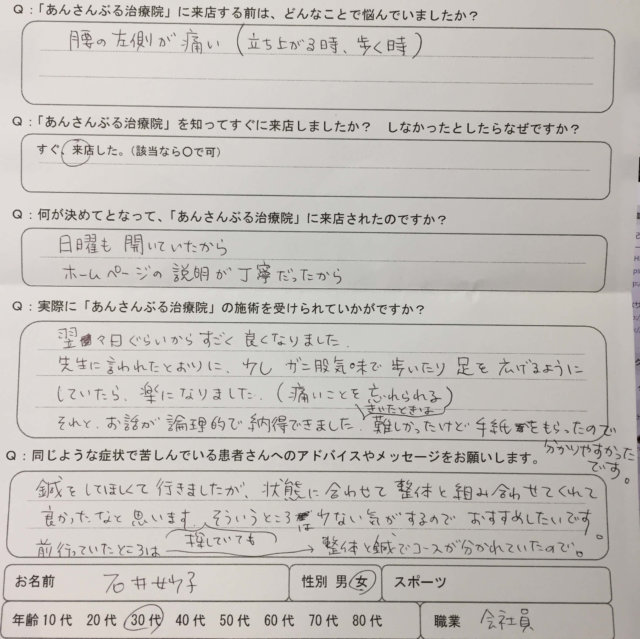 Q：「あんさんぶる治療院」に来店する前は、どんなことで悩んでいましたか？
腰の左側が痛い（立ち上がる時、歩く時）
Q：「あんさんぶる治療院」を知ってすぐに来店しましたか？　しなかったとしたらなぜですか？
すぐ、来店した。（該当なら〇で可）
Q：何が決めてとなって、「あんさんぶる治療院」に来店されたのですか？
日曜も開いていたから
ホームページの説明が丁寧だったから
Q：実際に「あんさんぶる治療院」の施術を受けられていかがですか？
翌々日ぐらいからすごく良くなりました。
先生に言われたとおりに、少しガニ股気味で歩いたり足を広げるように
していたら、楽になりました。（痛いことを忘れられる）
それと、お話が論理的で納得できました。難しかったけど手紙をもらったので
きいたときは
分かりやすかった
です。
Q：同じような症状で苦しんでいる患者さんへのアドバイスやメッセージをお願いします。
鍼をしてほしくて行きましたが、状態に合わせて整体と組み合わせてくれて
良かったなと思います。そういうところは少ない気がするのでおすすめしたいです。
探していても
前行っていたところは　整体と鍼でコースが分かれていたので。
お名前　石井　子　性別　男　女　スポーツ
年齢　10代　20代　30代　40代　50代　60代　70代　80代　職業　会社員